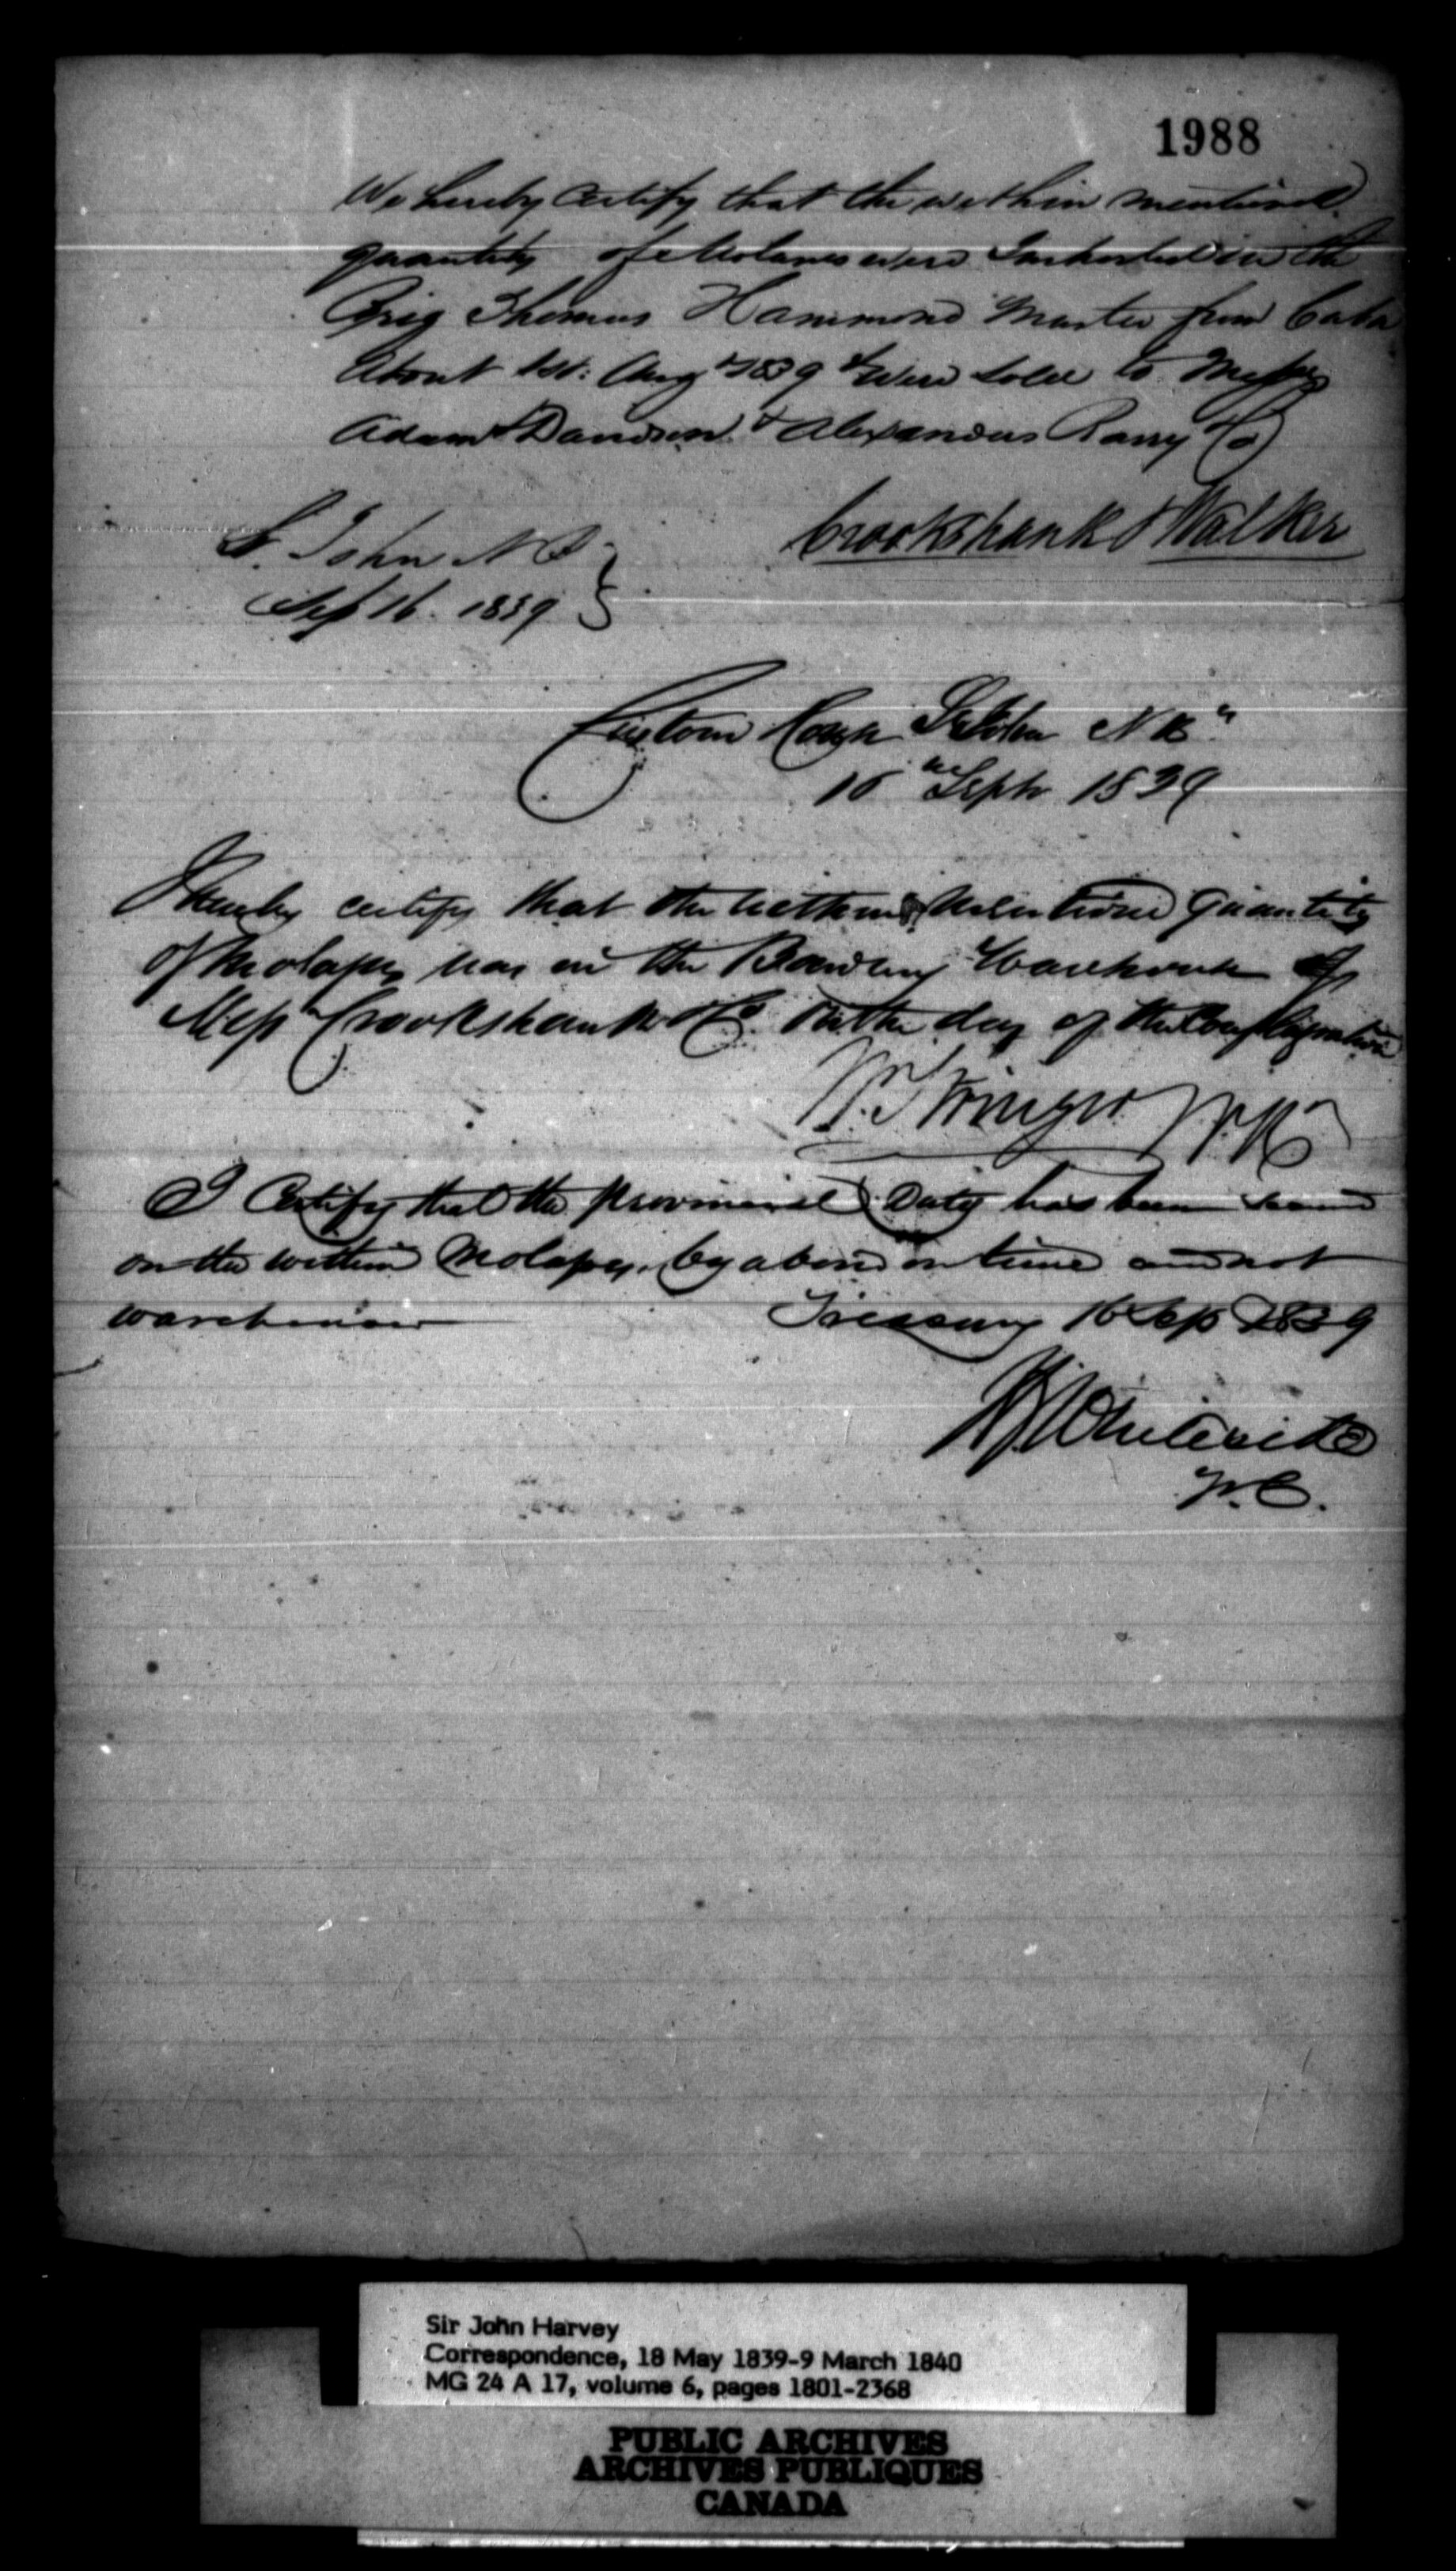 1988
We hereby Certify that the within mentioned
quantity of Molasses were Imported in the
Brig Thomas Hammond Master from Cuba
About 1st: Aug 1839 & Were Sold to Messrs
Adam & Davidson & Alexanders Barry & Co
Crookshank & Walker
St. John N B
Sep 16. 1839
Custom House St John NB
16 Septr 1839
I hereby certify that the within Mentioned Quantity
of Molasses was in the Bonding Warehouse of
Messrs Crookshank & Co. on the day of the Conflagration
I Certify that the provincial Duty has been secured
on the within Molasses, by a bond on time and not
warehoused
Treasury 16 Sep 1839
Whiteside
Sir John Harvey
Correspondence, 18 May 1839-9 March 1840
MG 24 A 17, volume 6, pages 1801-2368
PUBLIC ARCHIVES
ARCHIVES PUBLIQUES
CANADA